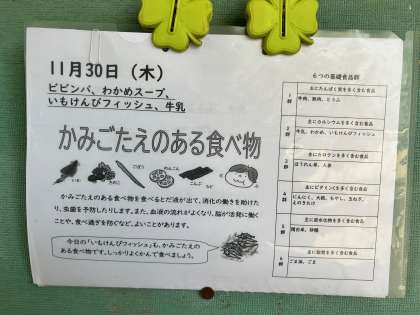 11月30日（木）
ビビンバ、わかめスープ、
いもけんぴフィッシュ、牛乳
かみごたえのある食べ物
いか
たこ
ごぼう
れんこん
こんぶ
かみごたえのある食べ物を食べるとだ液が出て、消化の働きを助けた
り、虫歯を予防したりします。また、血液の流れがよくなり、脳が活発に働く
ことや、食べ過ぎを防ぐなど、よいことがあります。
今日の「いもけんぴフィッシュ」も、かみごたえの
ある食べ物です。しっかりよくかんで食べましょう。
6つの基礎食品群
1群
主にたんぱく質を多く含む食品
牛肉、豚肉、とうふ
2群
主にカルシウムを多く含む食品
牛乳、わかめ、いもけんぴフィッシュ
3群
主にカロテンを多く含む食品
ほうれん草、人参
4群
主にビタミンCを多く含む食品
にんにく、大根、もやし、玉ねぎ、
えのきたけ
5群
主に炭水化物を多く含む食品
精白米、砂糖
6群
主に脂質を多く含む食品
ごま油、ごま